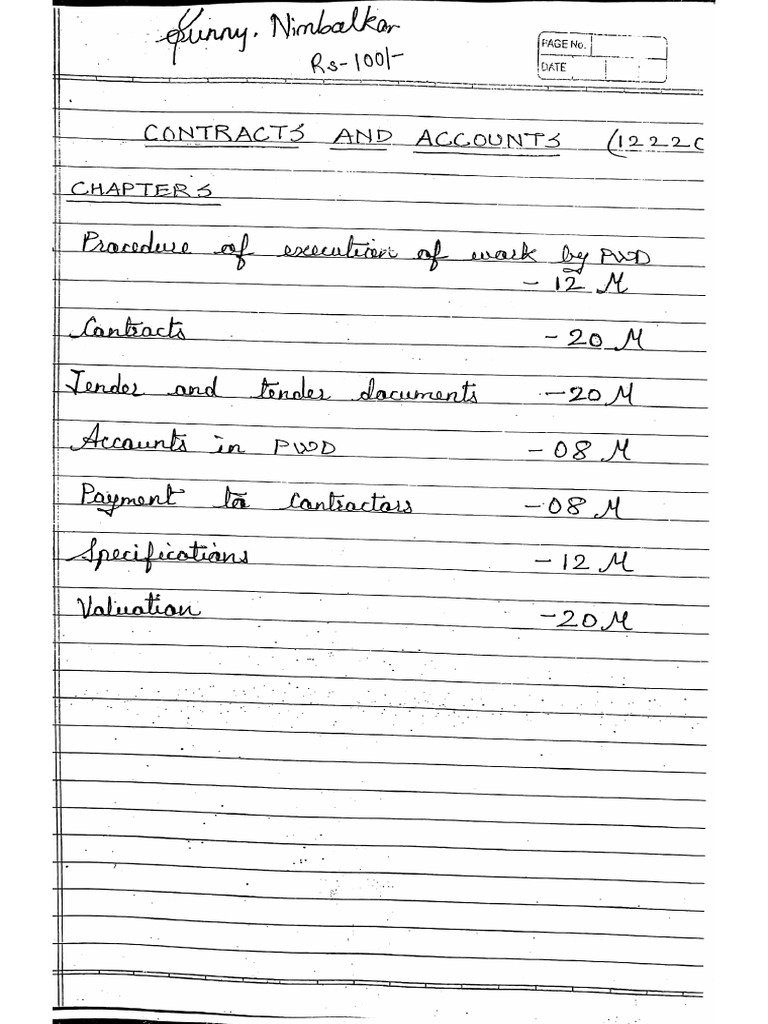 Nimbalkar
Rs-100/-
PAGE No.
DATE
CONTRACTS AND ACCOUNTS (1222
CHAPTERS
Procedure of execution of work by PWD
- 12 M
Contracts - 20 M
Tender and tender documents - 20 M
Accounts in PWD - 08 M
Payment to Contractors - 08 M
Specifications - 12 M
Valuation - 20 M